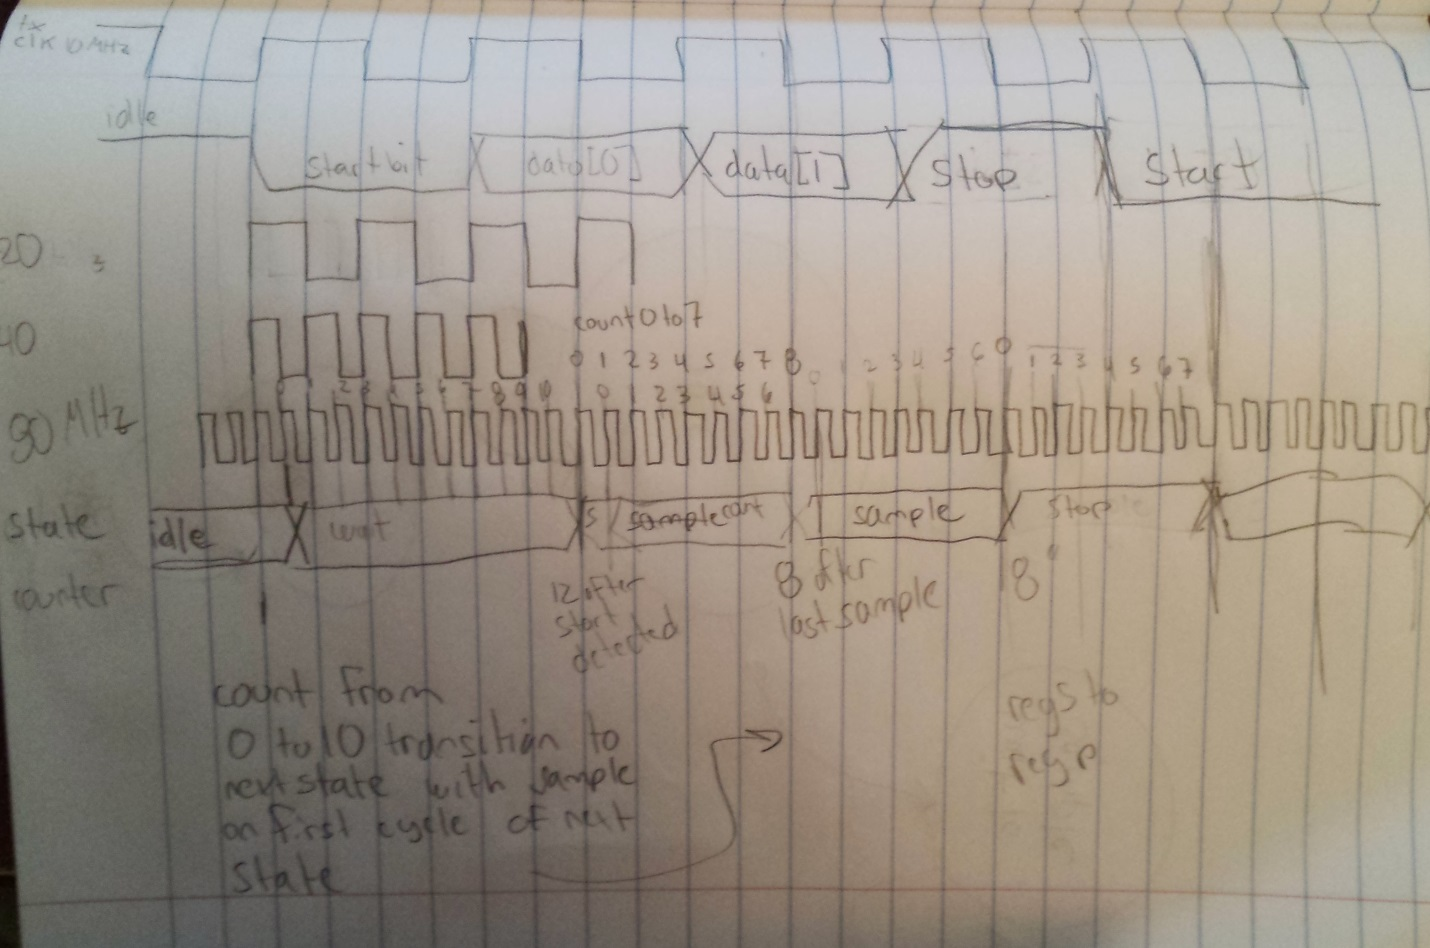 tx
clk 10 MHz
idle
start bit data[0] data[1] Stop Start
20
40
count 0 to 7
0 1 2 3 4 5 6 7 8 2 3 4 5 6 0 1 2 3 4 5 6 7
2 3 4 5 6 7 8 9 10 0 1 2 3 4 5 6
80 MHz
state idle wait S sample cont sample stop
counter
12 after
start
detected
8 after
last sample
8
count from
0 to 10 transition to
next state with sample
on first cycle of next
state
regs to
regp